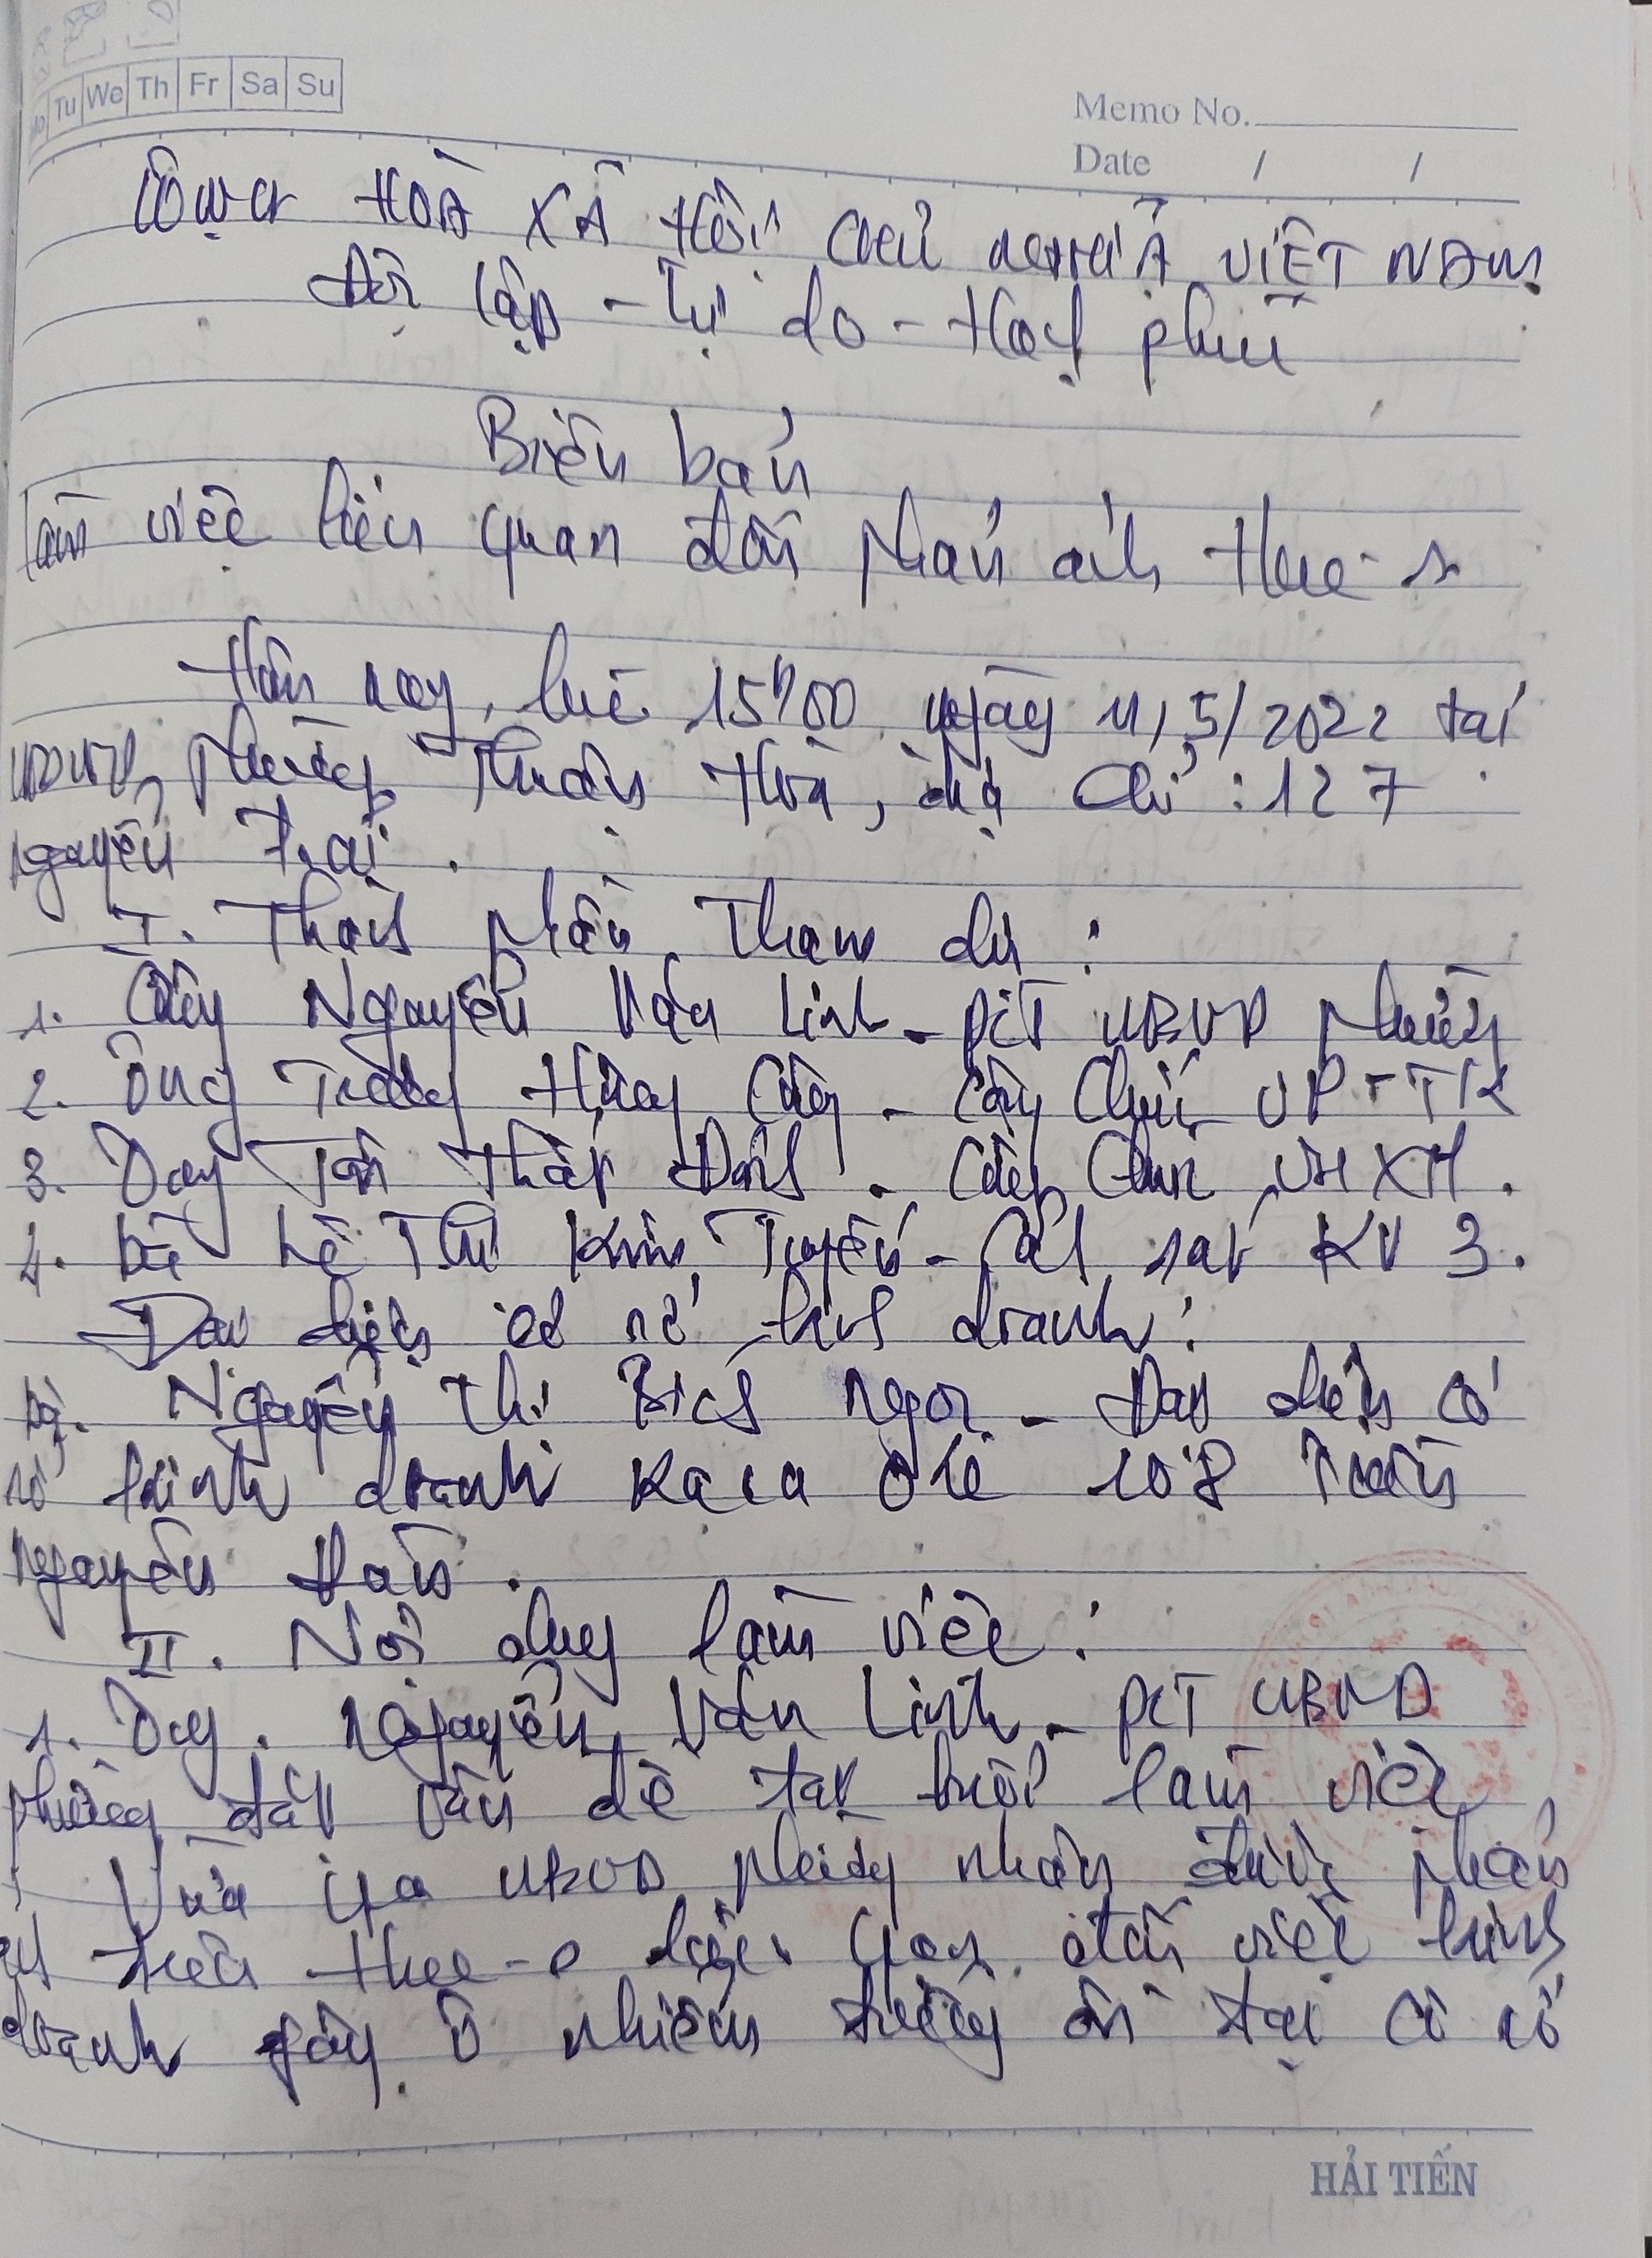 Tu We Th Fr Sa Su
Memo No.
Date / /
CỘNG HOÀ XÃ HỘI CHỦ NGHĨA VIỆT NAM
Độc lập - Tự do - Hạnh phúc
Biên bản
Làm việc liên quan đến phản ánh Hue-s
Hôm nay, lúc 15h00 ngày 11/5/2022 tại
UBND phường Thuận Hoà, địa chỉ: 127
Nguyễn Trãi.
I. Thành phần tham dự:
1. Ông Nguyễn Văn Linh - PCT UBND phường
2. Ông Trương Hùng Cường - Công chức VP-TK
3. Ông Tôn Thất Định - Công chức VHXH.
4. Bà Lê Thị Kim Tuyến - Cảnh sát KV 3.
Đại diện cơ sở kinh doanh:
Bà. Nguyễn Thị Bích Ngọc - Đại diện cơ
sở kinh doanh Karaoke 108 Trần
Nguyên Hãn.
II. Nội dung làm việc:
1. Ông. Nguyễn Văn Linh - PCT UBND
phường đặt vấn đề tại buổi làm việc
Vừa qua UBND phường nhận được phản
ánh trên Hue-s liên quan đến việc kinh
doanh gây ô nhiễm tiếng ồn tại cơ sở
HẢI TIẾN